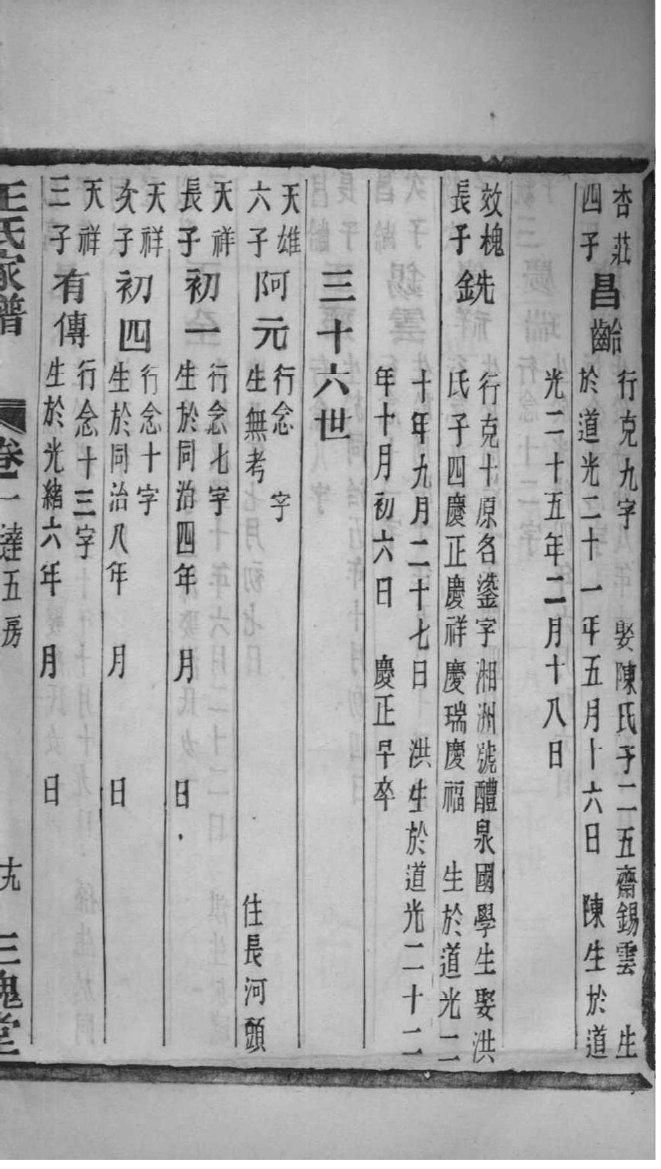 杏莊
四子
昌齡
行克九字 娶陳氏子二五齋錫雲 生
於道光二十一年五月十六日 陳生於道
光二十五年二月十八日
效槐
長子
銑
行克十原名鎏字湘洲號醴泉國學生娶洪
氏子四慶正慶祥慶瑞慶福 生於道光二
十年九月二十七日 洪生於道光二十二
年十月初六日 慶正早卒
三十六世
天雄
六子
阿元
行念 字
生無考 住長河頭
天祥
長子
初一
行念七字
生於同治四年 月 日
天祥
次子
初四
行念十字
生於同治八年 月 日
天祥
三子
有傳
行念十三字
生於光緒六年 月 日
王氏家譜 卷一達五房 十九 三槐堂